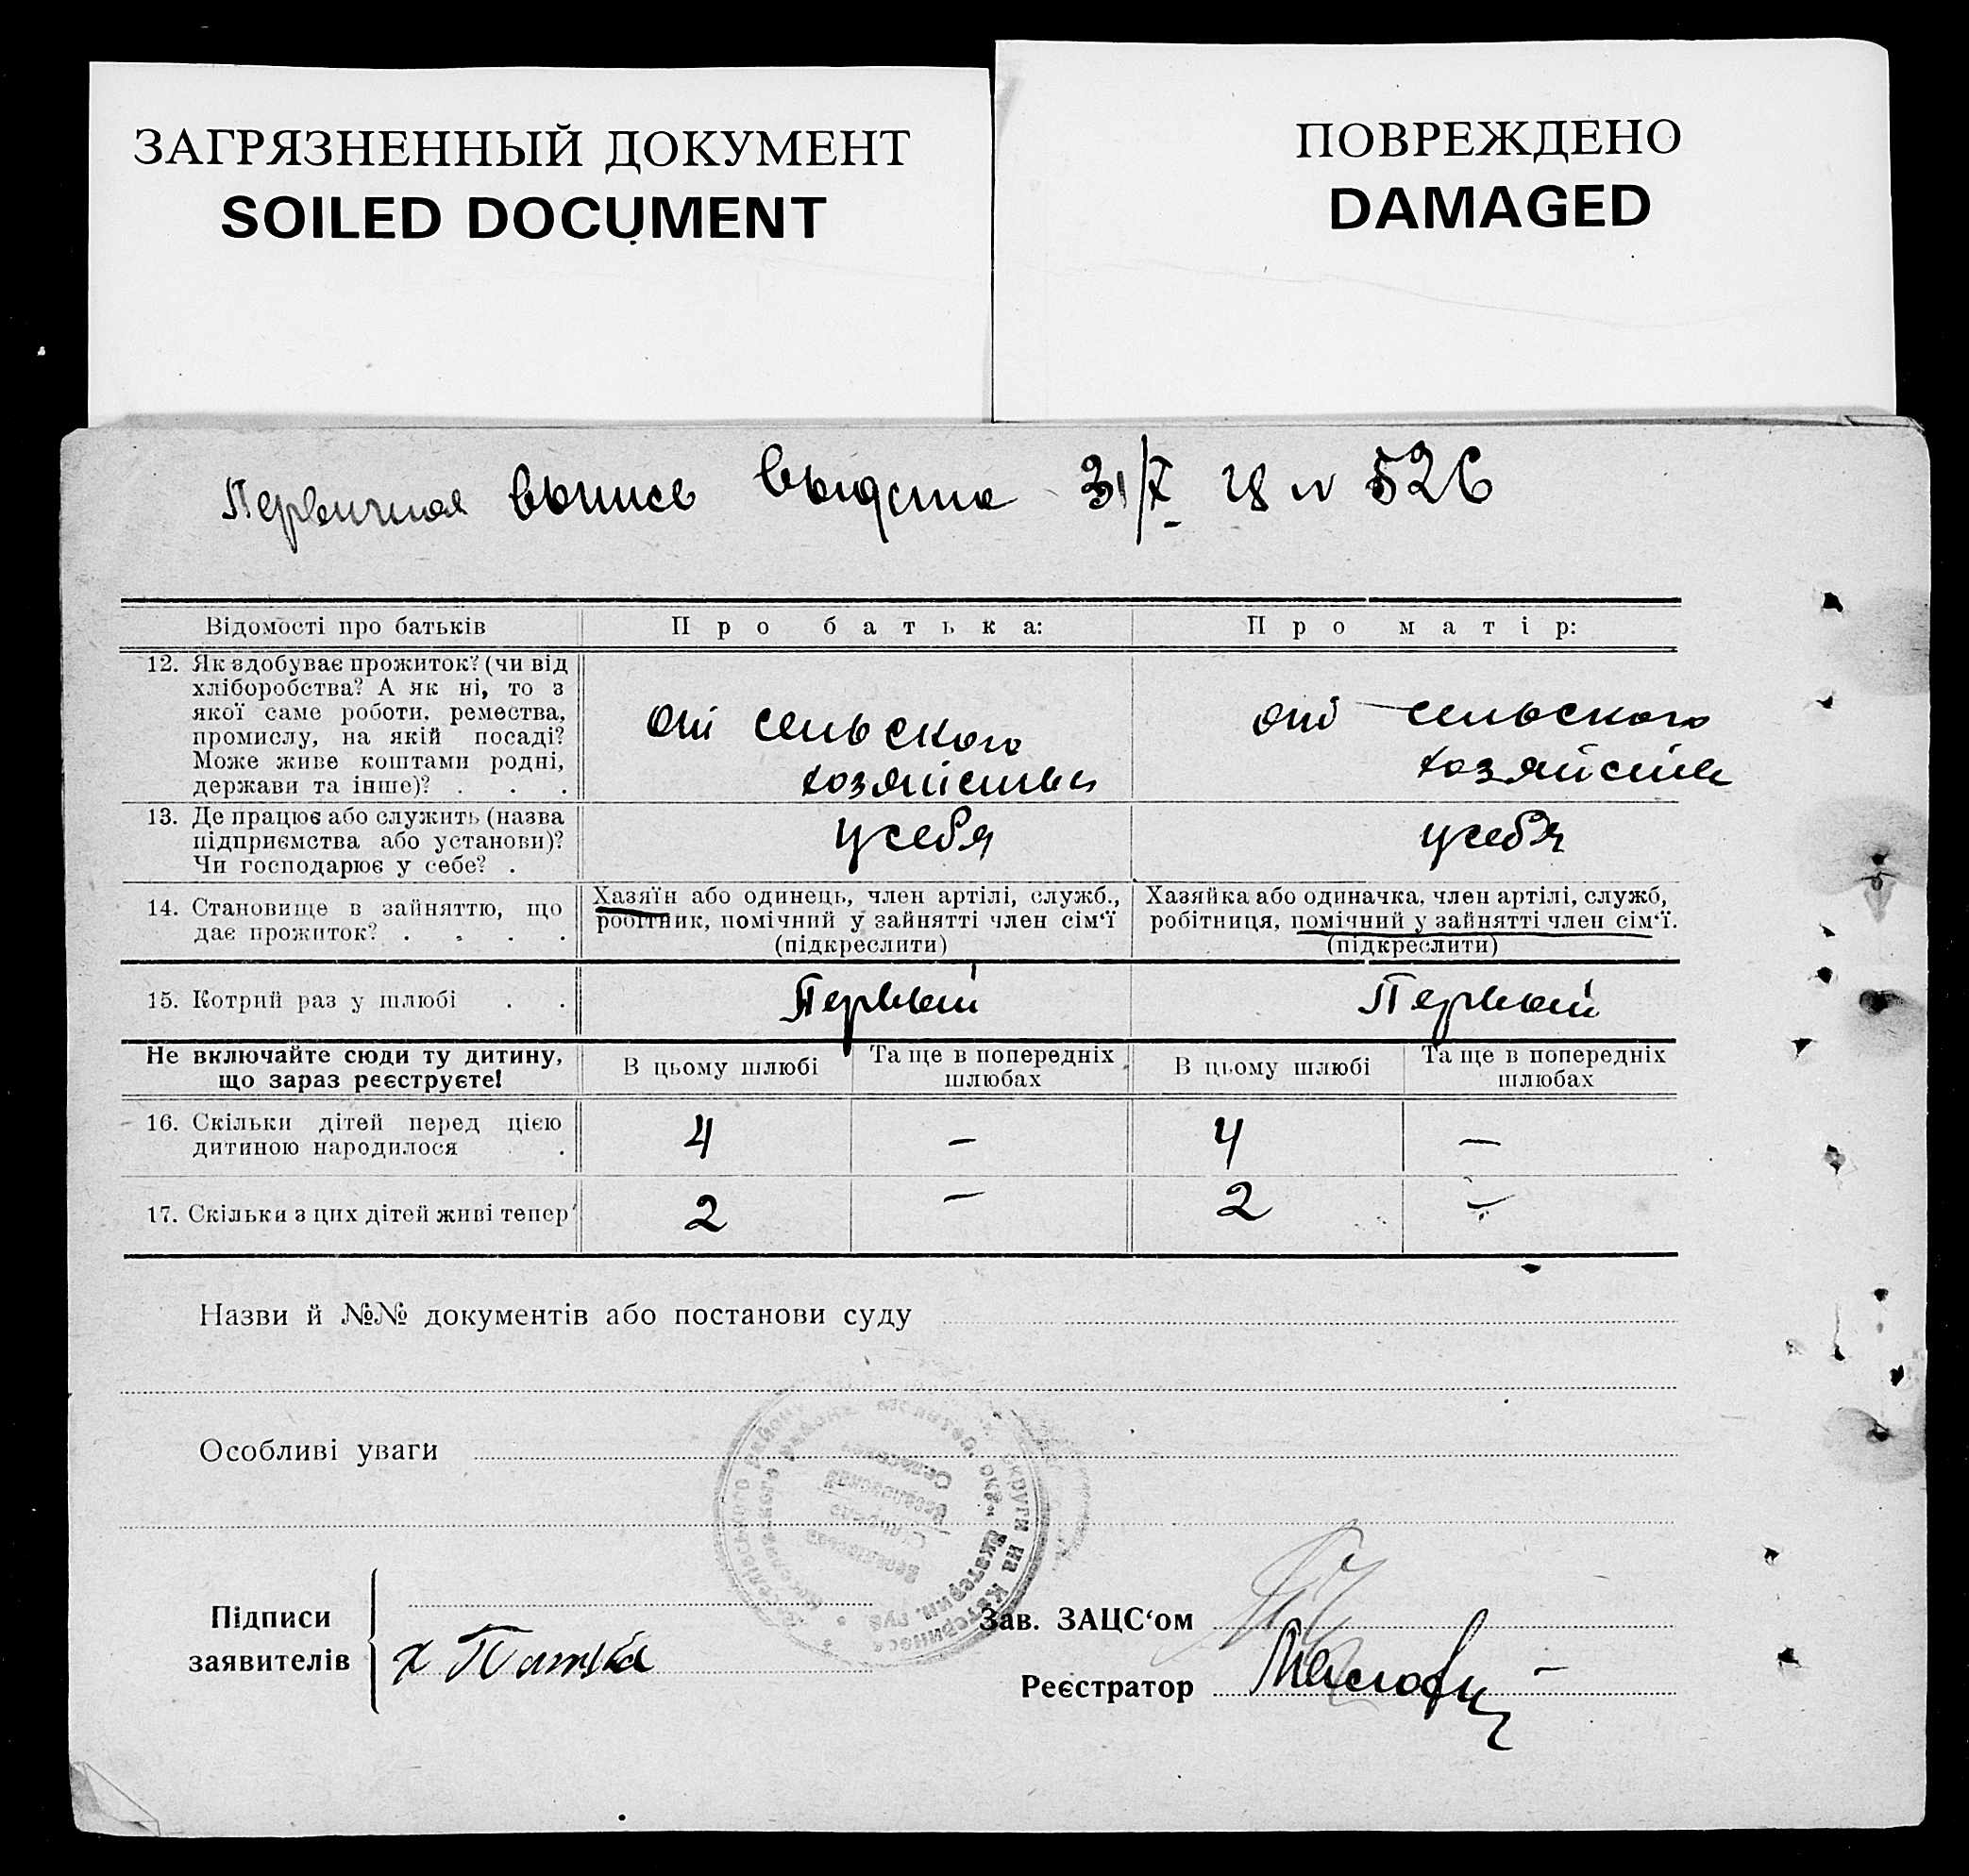 ЗАГРЯЗНЕННЫЙ ДОКУМЕНТ
SOILED DOCUMENT
ПОВРЕЖДЕНО
DAMAGED
Первичная выпись выдана 31/X 28 N 526
Відомості про батьків
Про батька:
Про матір:
12. Як здобуває прожиток? (чи від
хліборобства? А як ні, то з
якої саме роботи, ремества,
промислу, на якій посаді?
Може живе коштами родні,
держави та інше)? . . .
от сельского
хозяйства
от сельского
хозяйства
13. Де працює або служить (назва
підприємства або установи)?
Чи господарює у себе? .
у себя
у себя
14. Становище в зайняттю, що
дає прожиток? . . . .
Хазяїн або одинець, член артілі, служб.,
робітник, помічний у зайнятті член сім‘ї
(підкреслити)
Хазяйка або одиначка, член артілі, служб,
робітниця, помічний у зайнятті член сім‘ї.
(підкреслити)
15. Котрий раз у шлюбі . .
Первый
Первый
Не включайте сюди ту дитину,
що зараз реєструєте!
В цьому шлюбі
Та ще в попередніх
шлюбах
В цьому шлюбі
Та ще в попередніх
шлюбах
16. Скільки дітей перед цією
дитиною народилося .
4
—
4
—
17. Скільки з цих дітей живі тепер
2
—
2
—
Назви й №№ документів або постанови суду
Особливі уваги
Підписи
заявителів
х
Зав. ЗАЦС‘ом
Реєстратор